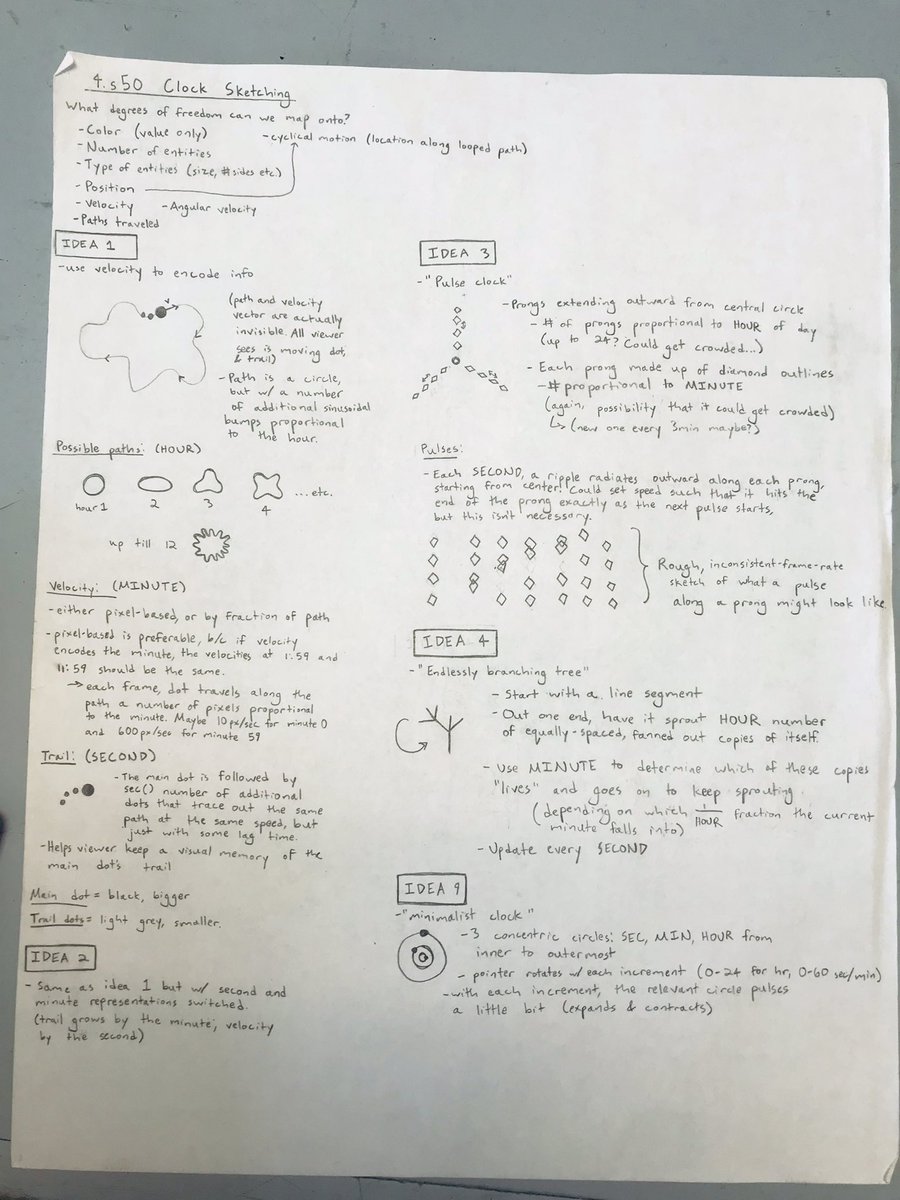 4.s50 Clock Sketching
What degrees of freedom can we map onto?
- Color (value only)
- cyclical motion (location along looped path)
- Number of entities
- Type of entities (size, # sides etc.)
- Position
- Velocity - Angular velocity
- Paths traveled
IDEA 1
- use velocity to encode info
v
(path and velocity
vector are actually
invisible. All viewer
sees is moving dot,
& trail)
- Path is a circle,
but w/ a number
of additional sinusoidal
bumps proportional
to the hour.
Possible paths: (HOUR)
hour 1
2
3
4
... etc.
up till 12
Velocity: (MINUTE)
- either pixel-based, or by fraction of path
- pixel-based is preferable, b/c if velocity
encodes the minute, the velocities at 1:59 and
11:59 should be the same.
→ each frame, dot travels along the
path a number of pixels proportional
to the minute. Maybe 10px/sec for minute 0
and 600px/sec for minute 59
Trail: (SECOND)
- The main dot is followed by
sec() number of additional
dots that trace out the same
path at the same speed, but
just with some lag time.
- Helps viewer keep a visual memory of the
main dot's trail
Main dot = black, bigger
Trail dots = light grey, smaller.
IDEA 2
- Same as idea 1 but w/ second and
minute representations switched.
(trail grows by the minute; velocity
by the second)
IDEA 3
- "Pulse clock"
- Prongs extending outward from central circle
- # of prongs proportional to HOUR of day
(up to 24? Could get crowded...)
- Each prong made up of diamond outlines
- # proportional to MINUTE
(again, possibility that it could get crowded)
↳ (new one every 3min maybe?)
Pulses:
- Each SECOND, a ripple radiates outward along each prong,
starting from center! Could set speed such that it hits the
end of the prong exactly as the next pulse starts,
but this isn't necessary.
Rough, inconsistent-frame-rate
sketch of what a pulse
along a prong might look like
IDEA 4
- "Endlessly branching tree"
- Start with a line segment
- Out one end, have it sprout HOUR number
of equally-spaced, fanned out copies of itself.
- Use MINUTE to determine which of these copies
"lives" and goes on to keep sprouting
(depending on which 1/HOUR fraction the current
minute falls into)
- Update every SECOND
IDEA 9
- "minimalist clock"
- 3 concentric circles: SEC, MIN, HOUR from
inner to outermost
- pointer rotates w/ each increment (0-24 for hr, 0-60 sec/min)
- with each increment, the relevant circle pulses
a little bit (expands & contracts)